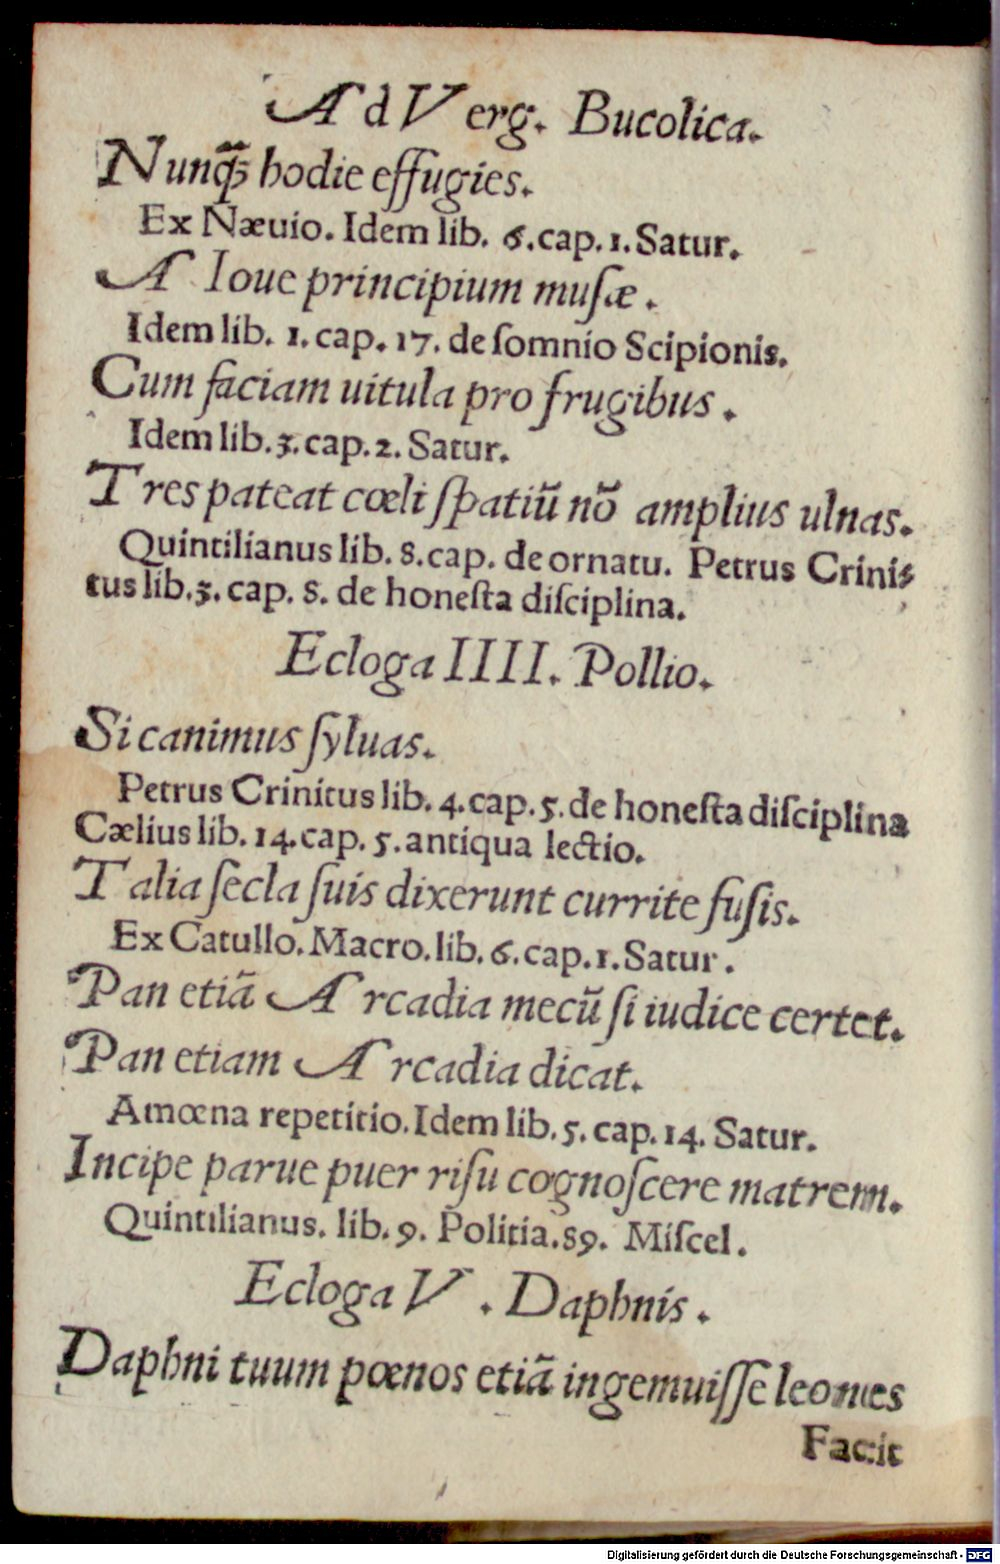 Ad Verg. Bucolica.
Nunq̃ꝫ hodie effugies.
Ex Næuio. Idem lib. 6.cap.1.Satur.
A Ioue principium muſæ.
Idem lib. 1.cap.17.de ſomnio Scipionis.
Cum faciam uitula pro frugibus.
Idem lib.3.cap.2.Satur.
Tres pateat cœli ſpatiũ nõ amplius ulnas.
Quintilianus lib.8.cap. de ornatu. Petrus Crini⸗
tus lib.3.cap.8.de honeſta diſciplina.
Ecloga IIII. Pollio.
Si canimus ſyluas.
Petrus Crinitus lib.4.cap.5.de honeſta diſciplina
Cælius lib.14.cap.5.antiqua lectio.
Talia ſecla ſuis dixerunt currite fuſis.
Ex Catullo. Macro.lib.6.cap.1.Satur.
Pan etiã Arcadia mecũ ſi iudice certet.
Pan etiam Arcadia dicat.
Amœna repetitio. Idem lib.5.cap.14. Satur.
Incipe parue puer riſu cognoſcere matrem.
Quintilianus. lib.9. Politia.89. Miſcel.
Ecloga V. Daphnis.
Daphni tuum pœnos etiã ingemuiſſe leones
Facit
Digitalisierung gefördert durch die Deutsche Forschungsgemeinschaft - DFG